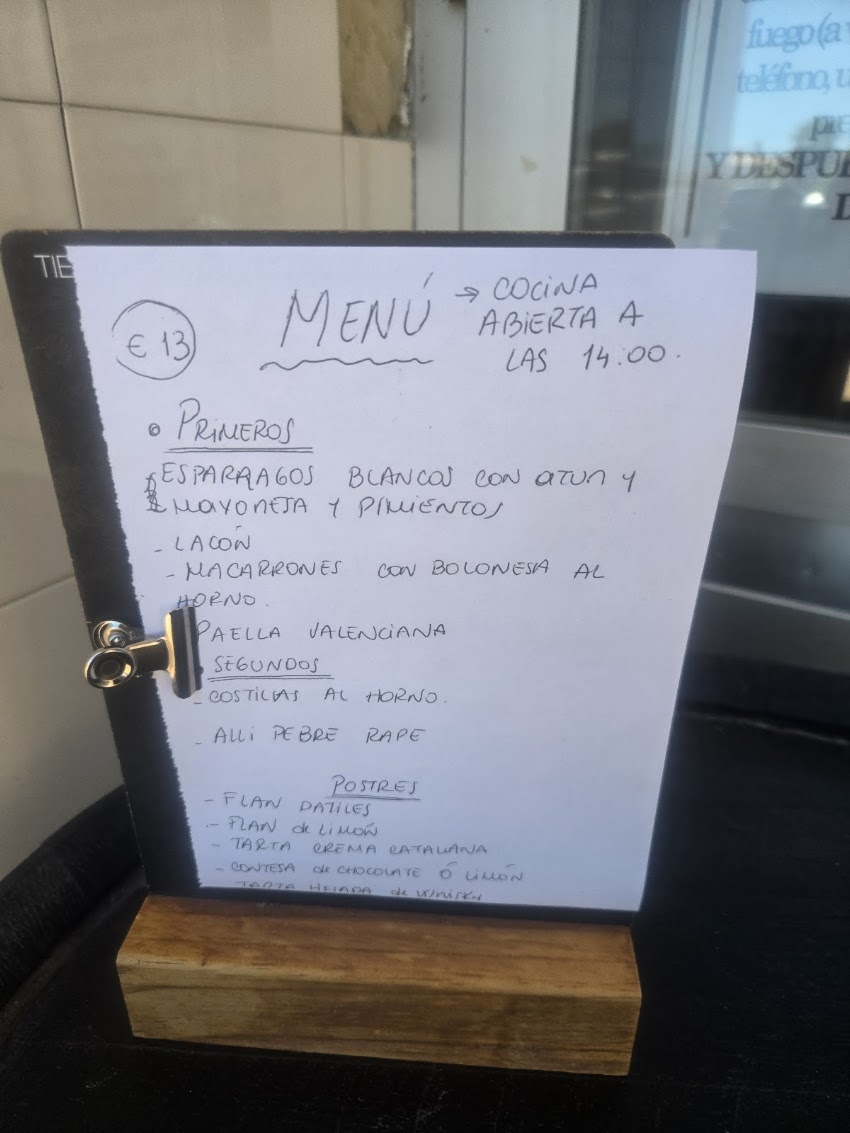 fuego (a
teléfono, u
pre
Y DESPUE
D
TIE
€ 13
MENÚ → COCINA
ABIERTA A
LAS 14:00.
• PRIMEROS
ESPARRAGOS BLANCOS CON ATUN Y
MAYONESA Y PIMIENTOS
- LACÓN
- MACARRONES CON BOLONESA AL
HORNO.
PAELLA VALENCIANA
SEGUNDOS
- COSTILLAS AL HORNO.
- ALLI PEBRE RAPE
POSTRES
- FLAN DATILES
- FLAN de LIMÓN
- TARTA CREMA CATALANA
- CONTESA de CHOCOLATE Ó LIMÓN
TARTA HELADA de WHISKY